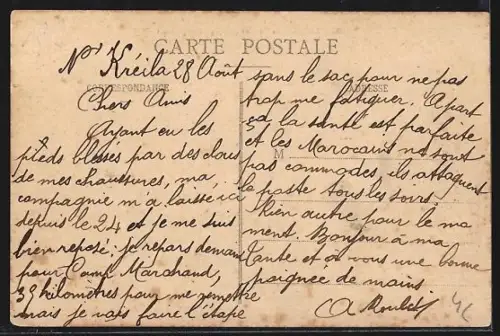 CARTE POSTALE
CORRESPONDANCE
ADRESSE
M
N' Kréila 28 Août
Chers Amis
Ayant eu les
pieds blessés par des clous
de mes chaussures, ma
compagnie m'a laissé ici
depuis le 24 et je me suis
bien reposé. je repars demain
pour Camp Marchand,
39 kilomètres pour me remettre
mais je vais faire l'étape
sans le sac pour ne pas
trop me fatiguer. A part
ça la santé est parfaite
et les Marocains ne sont
pas commodes, ils attaquent
le poste tous les soirs.
Rien autre pour le mo
ment. Bonjour à ma
Tante et à vous une bonne
poignée de mains.
A Moulet